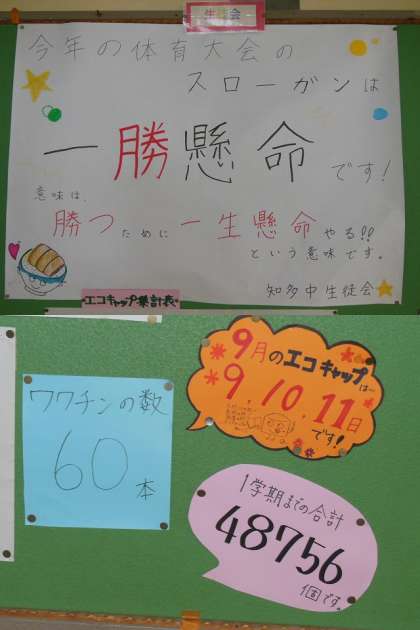 生徒会
今年の体育大会の
スローガンは
一勝懸命です!
意味は、
勝つために一生懸命やる!!
という意味です。
知多中生徒会
エコキャップ集計表
9月のエコキャップは〜
9,10,11日
です!
ワクチンの数
60本
1学期までの合計
48756
個です。